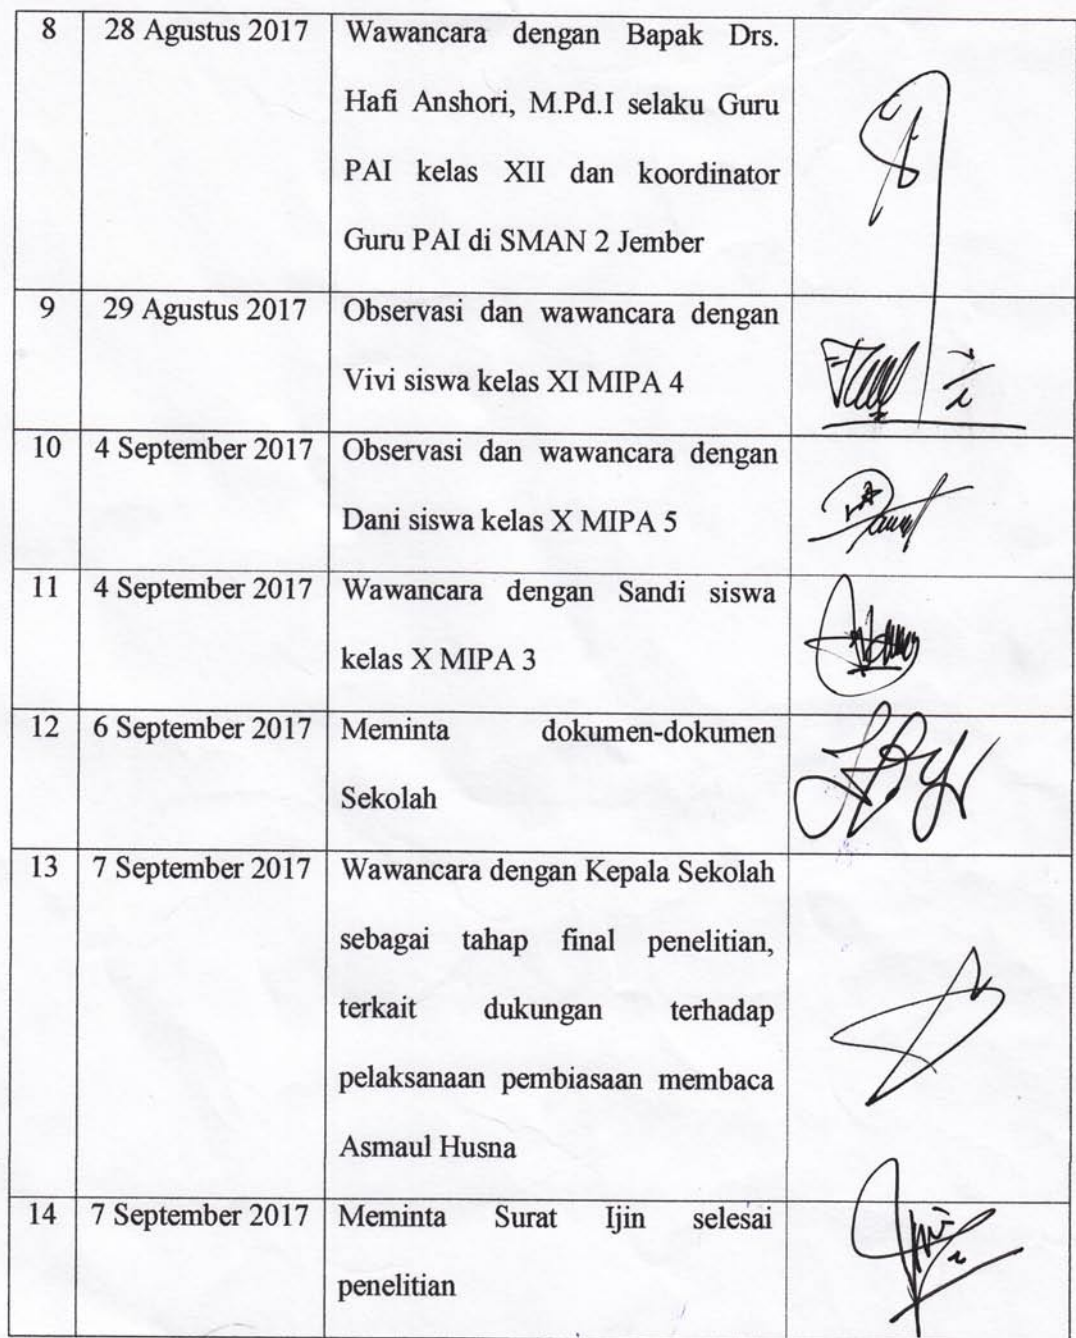 8 28 Agustus 2017 Wawancara dengan Bapak Drs.
Hafi Anshori, M.Pd.I selaku Guru
PAI kelas XII dan koordinator
Guru PAI di SMAN 2 Jember
9 29 Agustus 2017 Observasi dan wawancara dengan
Vivi siswa kelas XI MIPA 4
10 4 September 2017 Observasi dan wawancara dengan
Dani siswa kelas X MIPA 5
11 4 September 2017 Wawancara dengan Sandi siswa
kelas X MIPA 3
12 6 September 2017 Meminta dokumen-dokumen
Sekolah
13 7 September 2017 Wawancara dengan Kepala Sekolah
sebagai tahap final penelitian,
terkait dukungan terhadap
pelaksanaan pembiasaan membaca
Asmaul Husna
14 7 September 2017 Meminta Surat Ijin selesai
penelitian